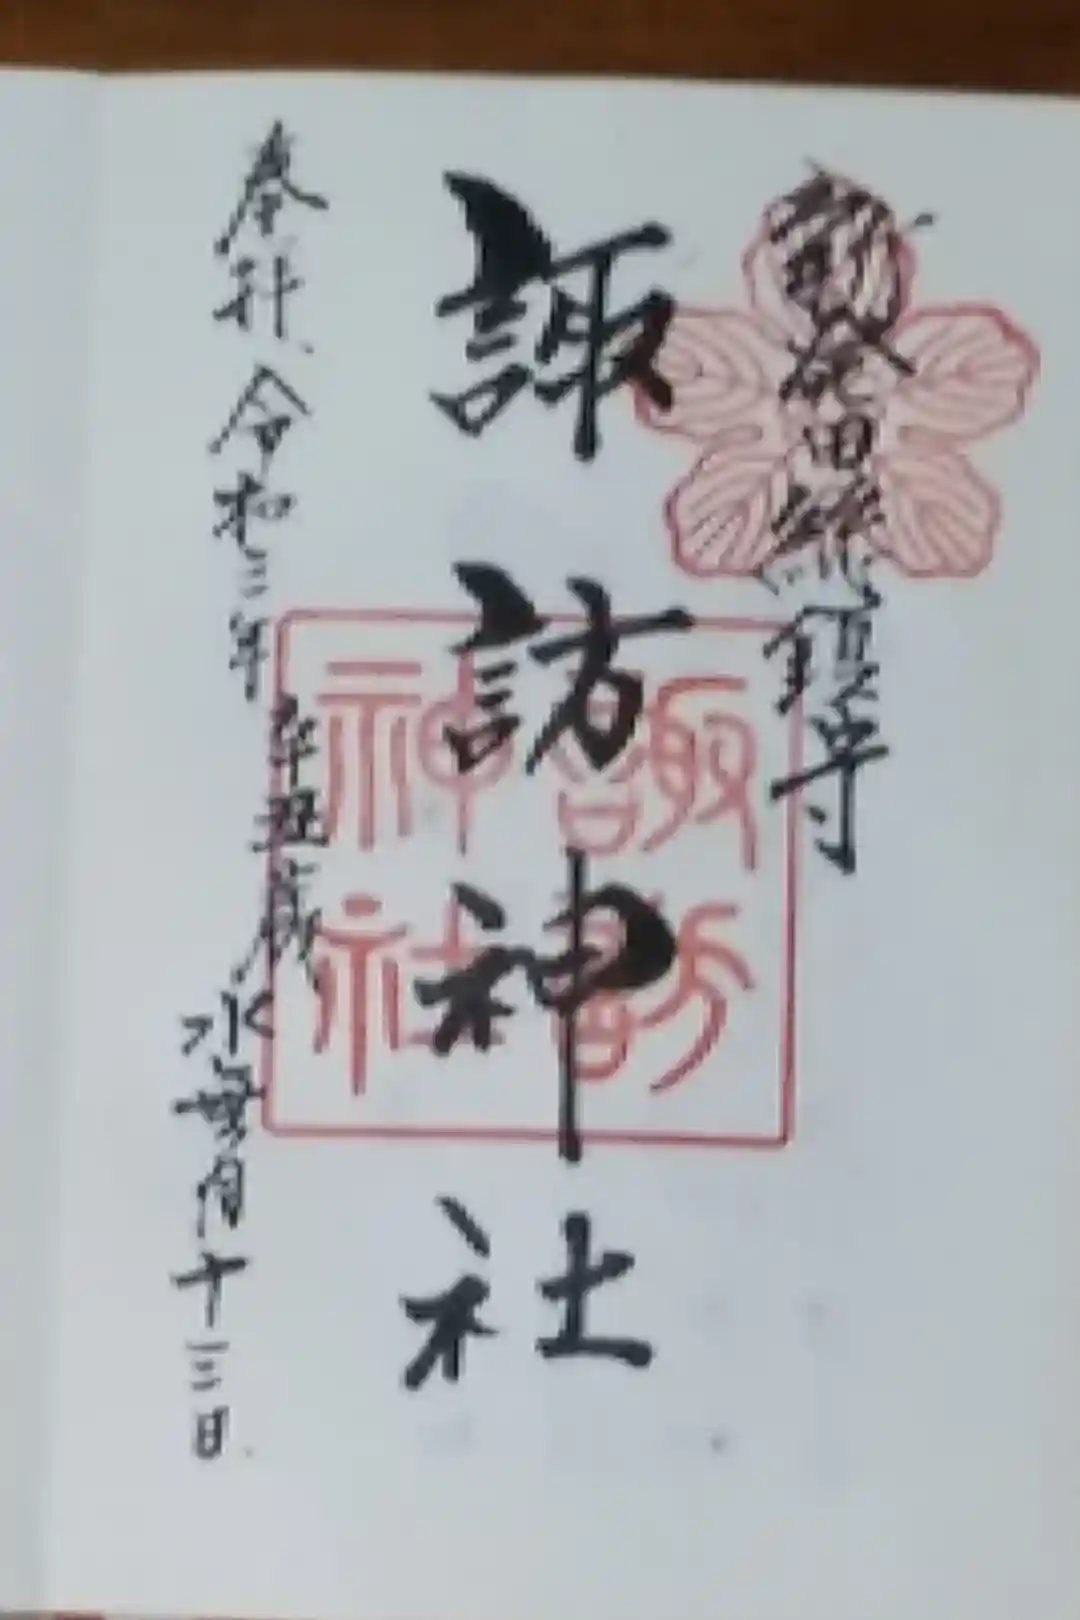 新発田総鎮守
諏訪神社
奉拝 令和三年 辛丑歳 水無月十三日
諏訪
神社